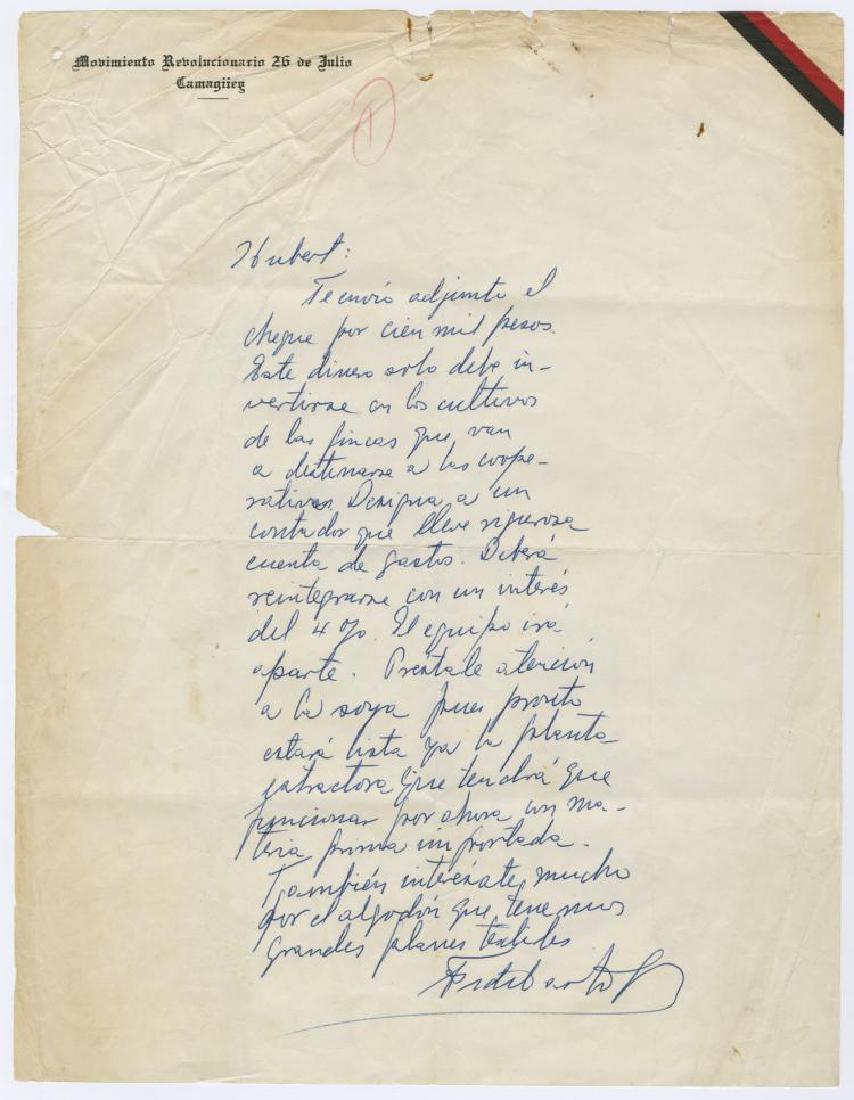 Movimiento Revolucionario 26 de Julio
Camagüey
1
Hubert:
Te envío adjunto el
cheque por cien mil pesos.
Este dinero solo debe in-
vertirse en los cultivos
de las fincas que van
a destinarse a las coope-
rativas. Designa a un
contador que lleve rigurosa
cuenta de gastos. Deberá
reintegrarse con un interés
del 4 %. El equipo irá
aparte. Prestale atencion
a la soya pues pronto
estará lista ya la planta
extractora que tendrá que
funcionar por ahora con ma-
teria prima importada.
También interésate mucho
por el algodón que tenemos
grandes planes textiles
Fidel Castro